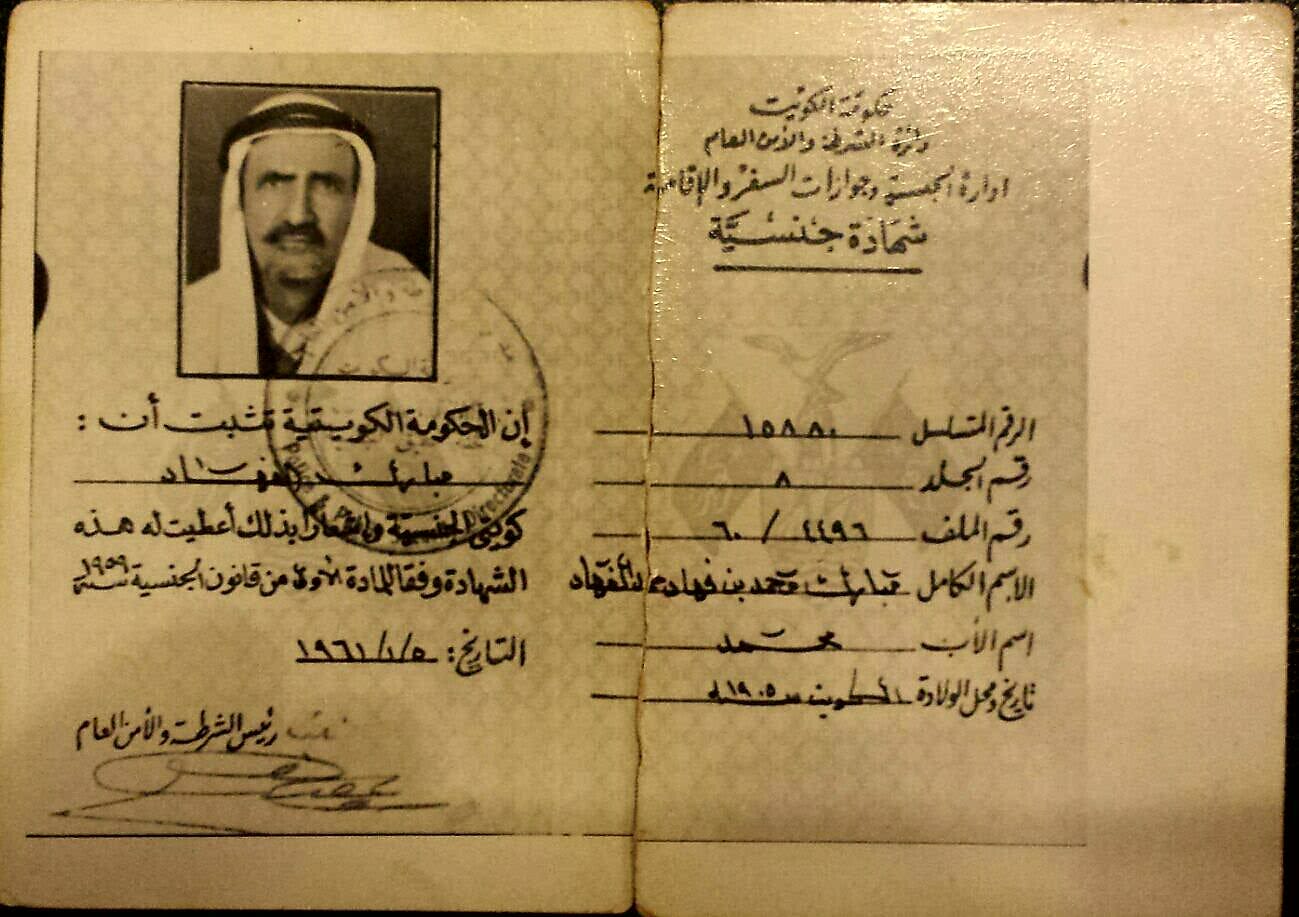 حكومة الكويت
دائرة الشرطة والأمن العام
ادارة الجنسية وجوازات السفر والإقامة
شهادة جنسية
الرقم المتسلسل ١٥٨٨٠
رقم الجلد ٨
رقم الملف ٤٤٩٦ / ٦٠
الاسم الكامل مبارك محمد بن فهاد الفهاد
اسم الأب محمد
تاريخ ومحل الولادة الكويت سنة ١٩٠٥
إن الحكومة الكويتية تثبت أن :
مبارك الفهاد
كويتي الجنسية وإشعارا بذلك أعطيت له هذه
الشهادة وفقا للمادة الأولى من قانون الجنسية سنة ١٩٥٩
التاريخ : ١٩٦١/١/٥
رئيس الشرطة والأمن العام
Directorate